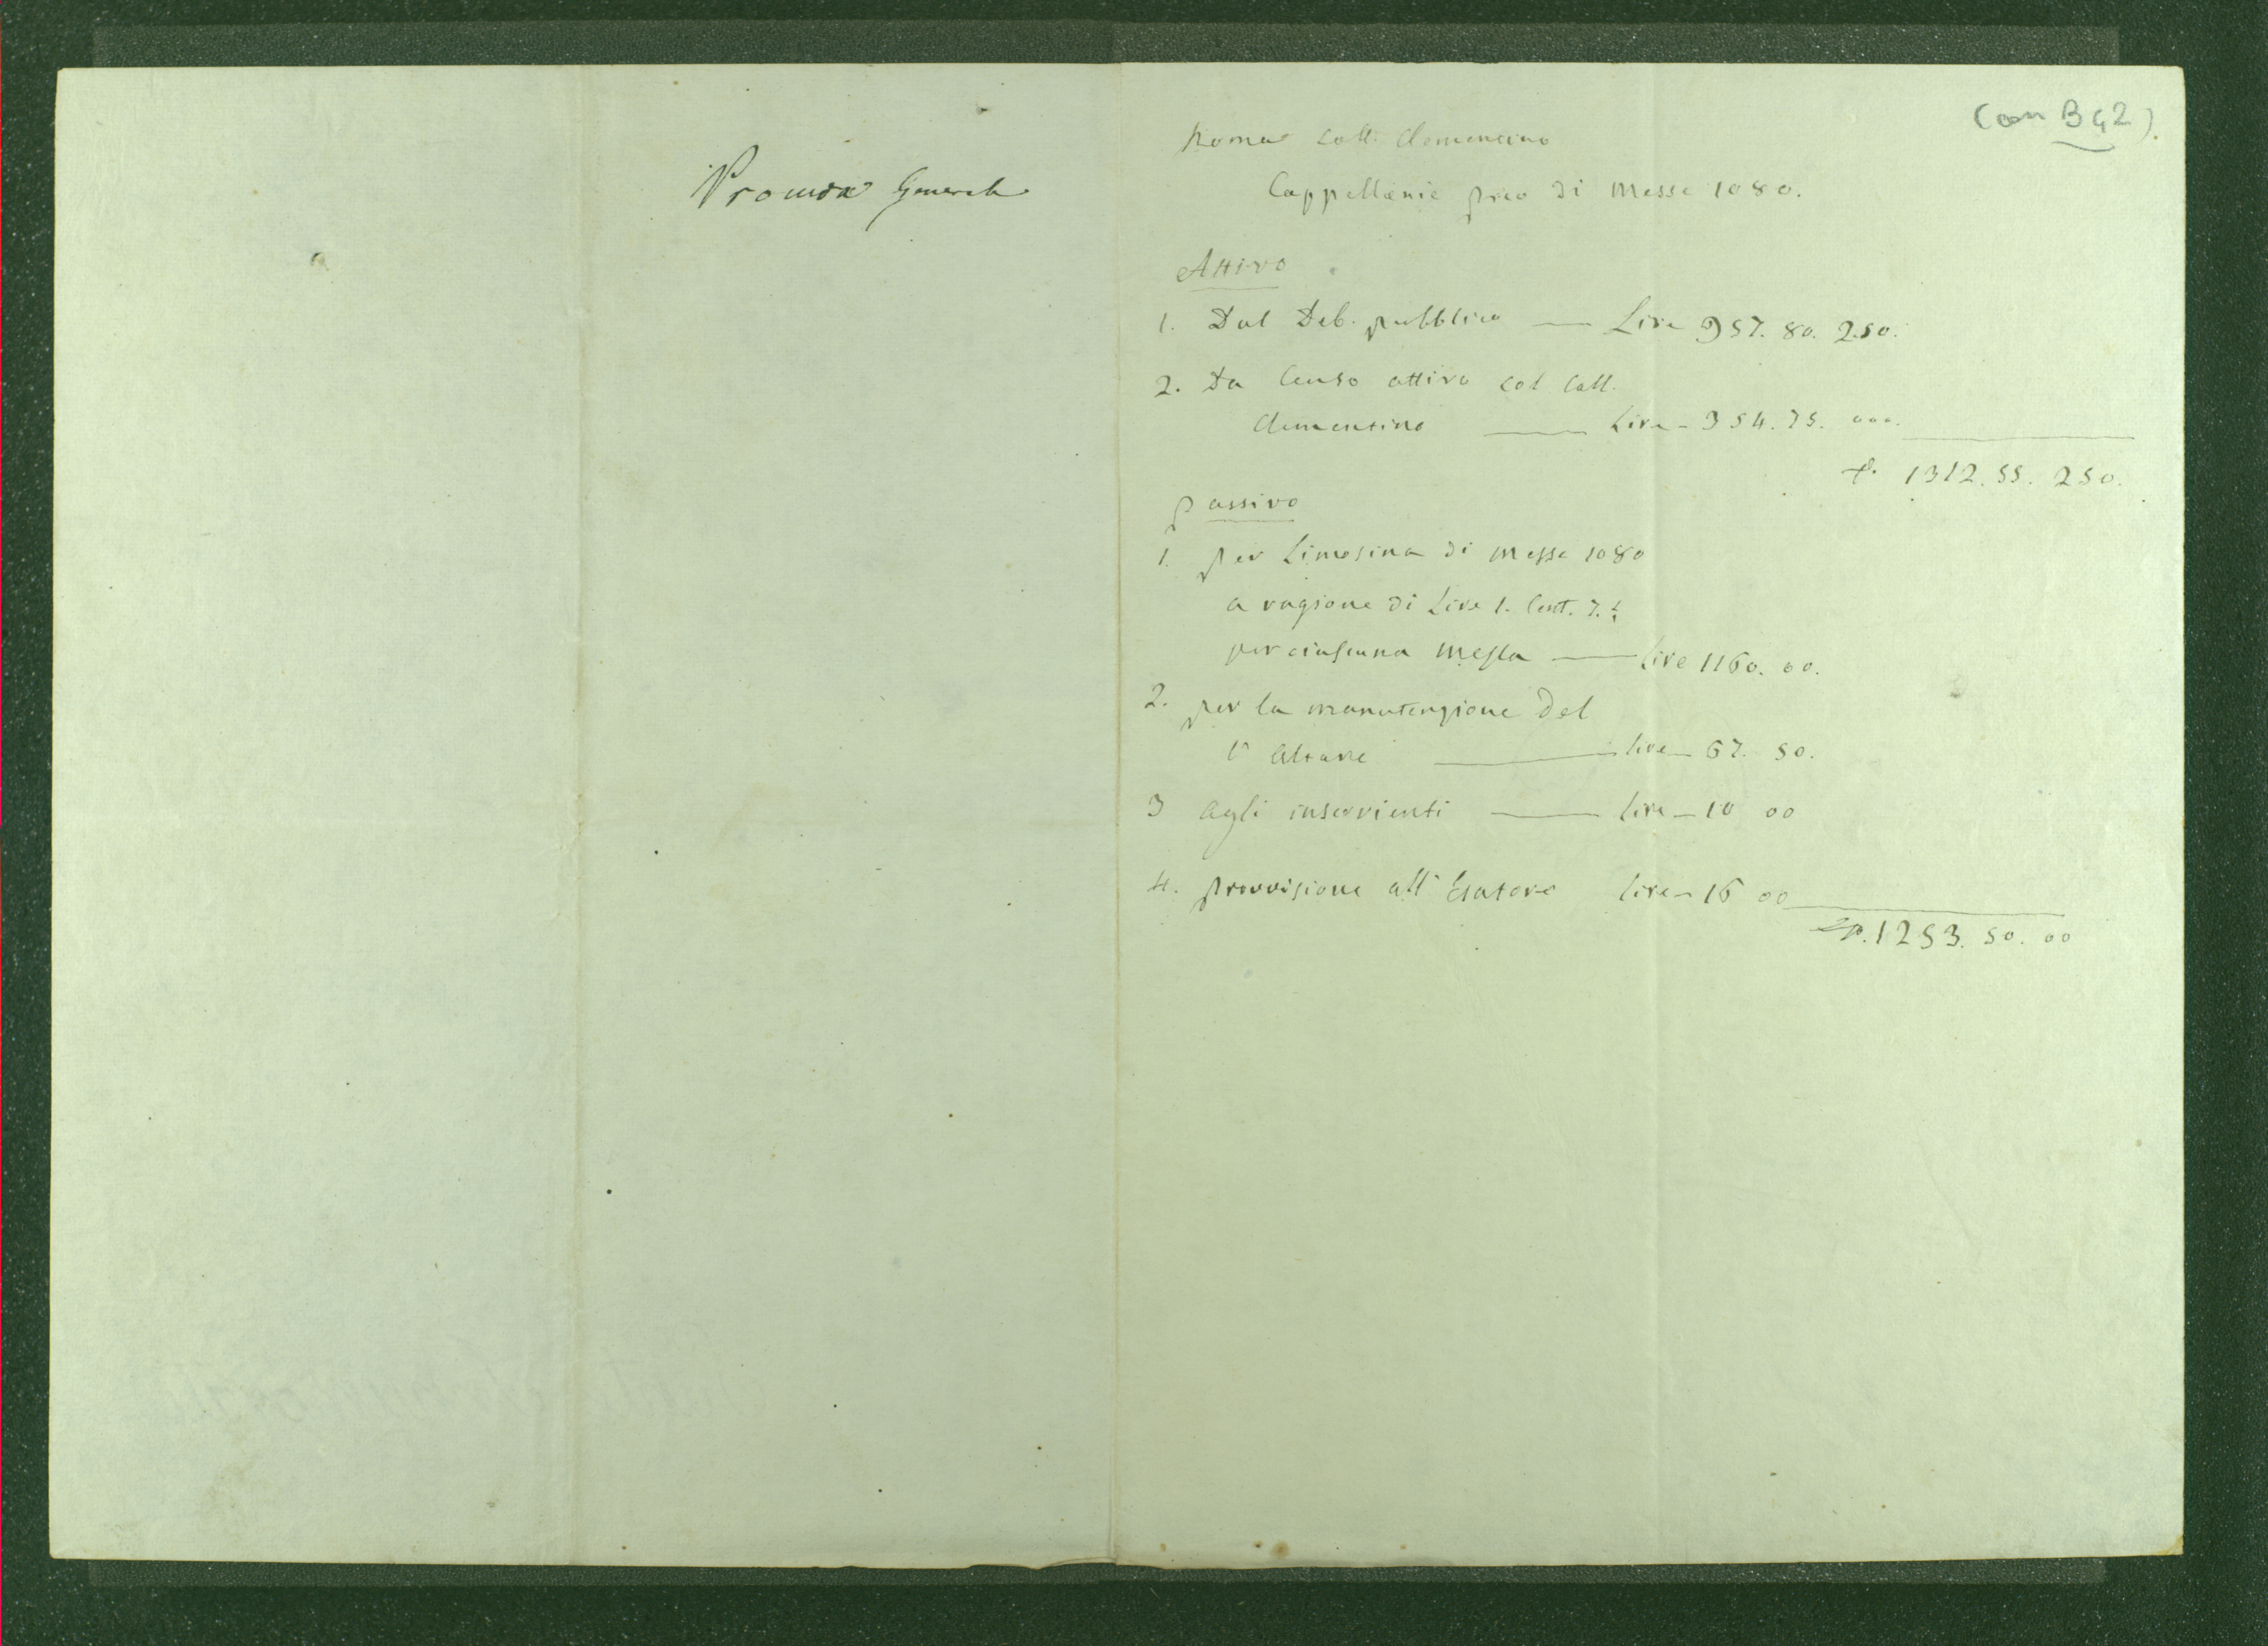 Procura Generale
(con B 92).
Roma Coll. Clementino
Cappellanie di Messe 1080.
Attivo
1. Dal Deb. pubblico — Lire 957. 80. 250.
2. Da Censo attivo col Coll.
Clementino — Lire - 354. 75. 000.
1312. 55. 250.
passivo
1. per Limosina di messe 1080
a ragione di Lire 1. Cent. 7.
per ciascuna messa — lire 1160. 00.
2. per la manutenzione del
Altare — lire - 67. 50.
3 agli inservienti — lire - 10 00
4. provvisione all' Esatore lire - 16 00
1253. 50. 00